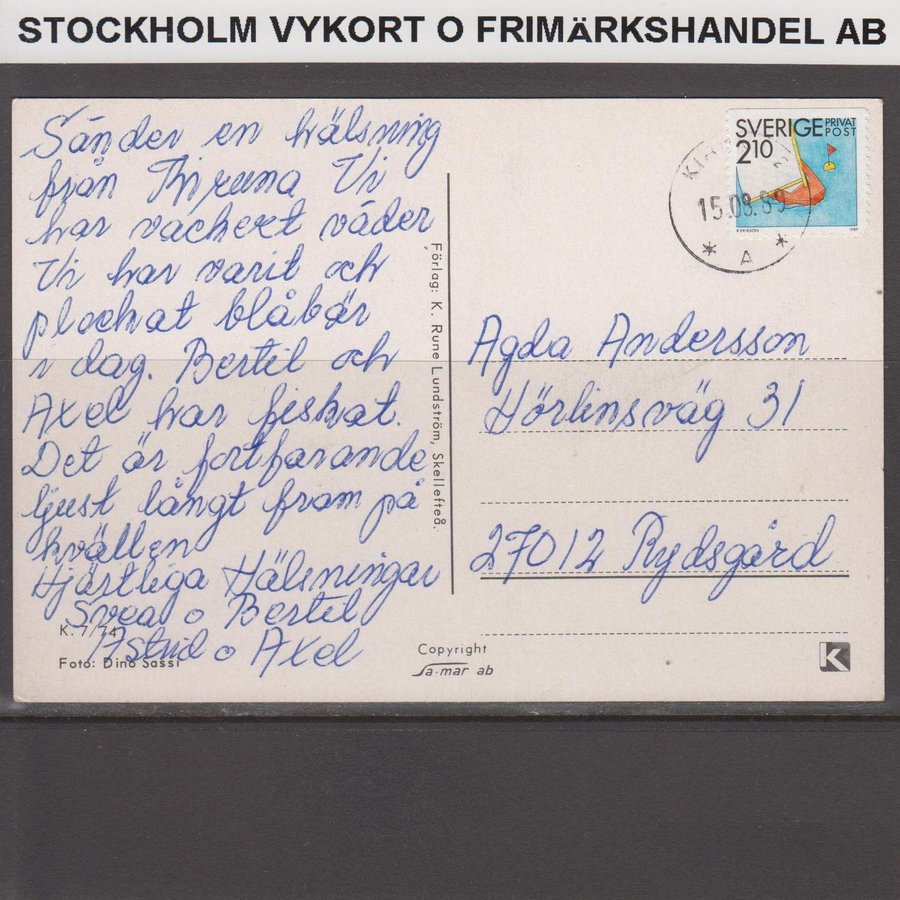 STOCKHOLM VYKORT O FRIMÄRKSHANDEL AB
Sänder en hälsning
från Kiruna Vi
har vackert väder
Vi har varit och
plockat blåbär
i dag. Bertil och
Axel har fiskat.
Det är fortfarande
ljust långt fram på
kvällen
Hjärtliga Hälsningar
Svea o Bertil
Astrid o Axel
K. 7/74
Foto: Dino Sassi
Förlag: K. Rune Lundström, Skellefteå.
Copyright
Sa-mar ab
SVERIGE PRIVAT
2.10 POST
R ERIKSON
15.08.89
* A *
Agda Andersson
Hörlinsväg 31
27012 Rydsgård
K